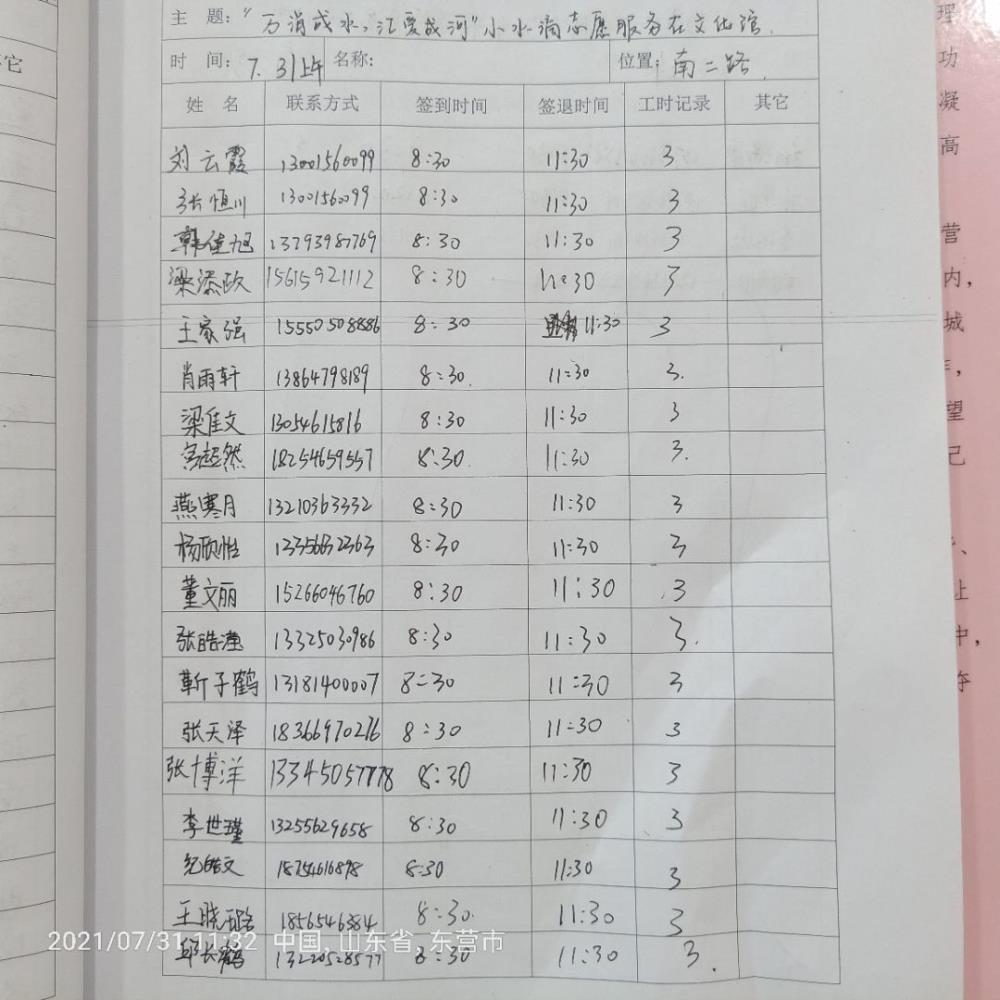 主 题:“万滴成水,汇爱成河”小水滴志愿服务在文化馆.
时 间: 7.31上午 名称: 位置: 南二路.
姓 名 联系方式 签到时间 签退时间 工时记录 其它
刘云霞 13001560099 8:30 11:30 3
张恒川 13001560099 8:30 11:30 3
韩佳旭 13793987769 8:30 11:30 3
梁添政 15615921112 8:30 11:30 3
王家强 15550508886 8:30 11:30 3
肖雨轩 13864798189 8:30. 11:30 3.
梁隹文 13054615816 8:30 11:30 3
超然 18254659557 8:30. 11:30 3.
燕寒月 13210363332 8:30 11:30 3
杨欣怡 13356632363 8:30 11:30 3
董文丽 15266046760 8:30 11:30 3
张皓滢 13325030986 8:30 11:30 3.
靳子鹤 13181400007 8:30 11:30 3
张天泽 18366970276 8:30 11:30 3
张博洋 13345057778 8:30 11:30 3
李世瑾 13255629658 8:30 11:30 3
纪皓文 18754616898 8:30 11:30 3
王晓璐 8:30. 11:30 3
邱长鹤 13220528577 8:30 11:30 3.
2021/07/31 11:32 中国,山东省,东营市
它
理
功
凝
高
营
内,
城
望
己
让
中,
夺